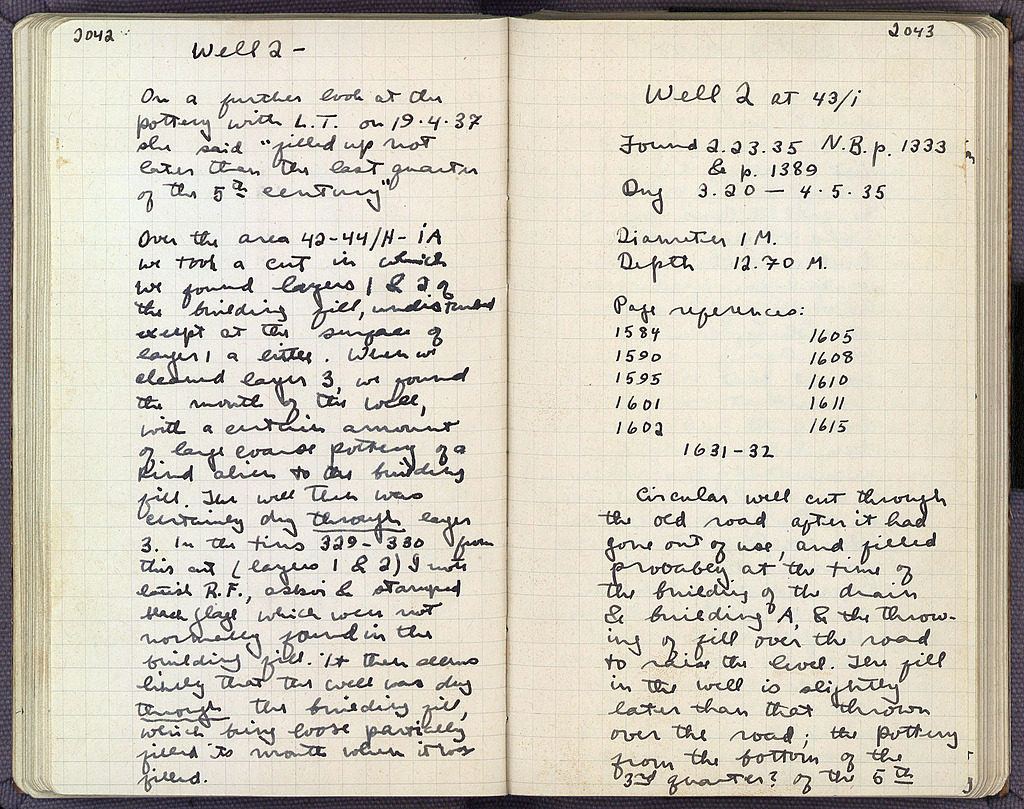 2042
Well 2 -
On a further look at the
pottery with L.T. on 19.4.37
she said "filled up not
later than the last quarter
of the 5th century"
Over the area 42-44/H-iA
we took a cut in which
we found layers 1 & 2 of
the building fill, undisturbed
except at the surface of
layer 1 a little. When we
cleaned layer 3, we found
the mouth of this well,
with a certain amount
of large coarse pottery of a
kind alien to the building
fill. The well then was
certainly dug through layer
3. In the tins 329-330 from
this cut (layers 1 & 2) I note
latish R.F., askoi & stamped
black glaze which were not
normally found in the
building fill. It then seems
likely that the well was dug
through the building fill,
which being loose partially
filled its mouth when it was
filled.
2043
Well 2 at 43/i
Found 2.23.35 N.B.p. 1333
& p. 1389
Dug 3.20 — 4.5.35
Diameter 1 M.
Depth 12.70 M.
Page references:
1584 1605
1590 1608
1595 1610
1601 1611
1602 1615
1631-32
Circular well cut through
the old road after it had
gone out of use, and filled
probably at the time of
the building of the drain
& building A, & the throw-
ing of fill over the road
to raise the level. The fill
in the well is slightly
later than that thrown
over the road; the pottery
from the bottom of the
3rd quarter? of the 5th